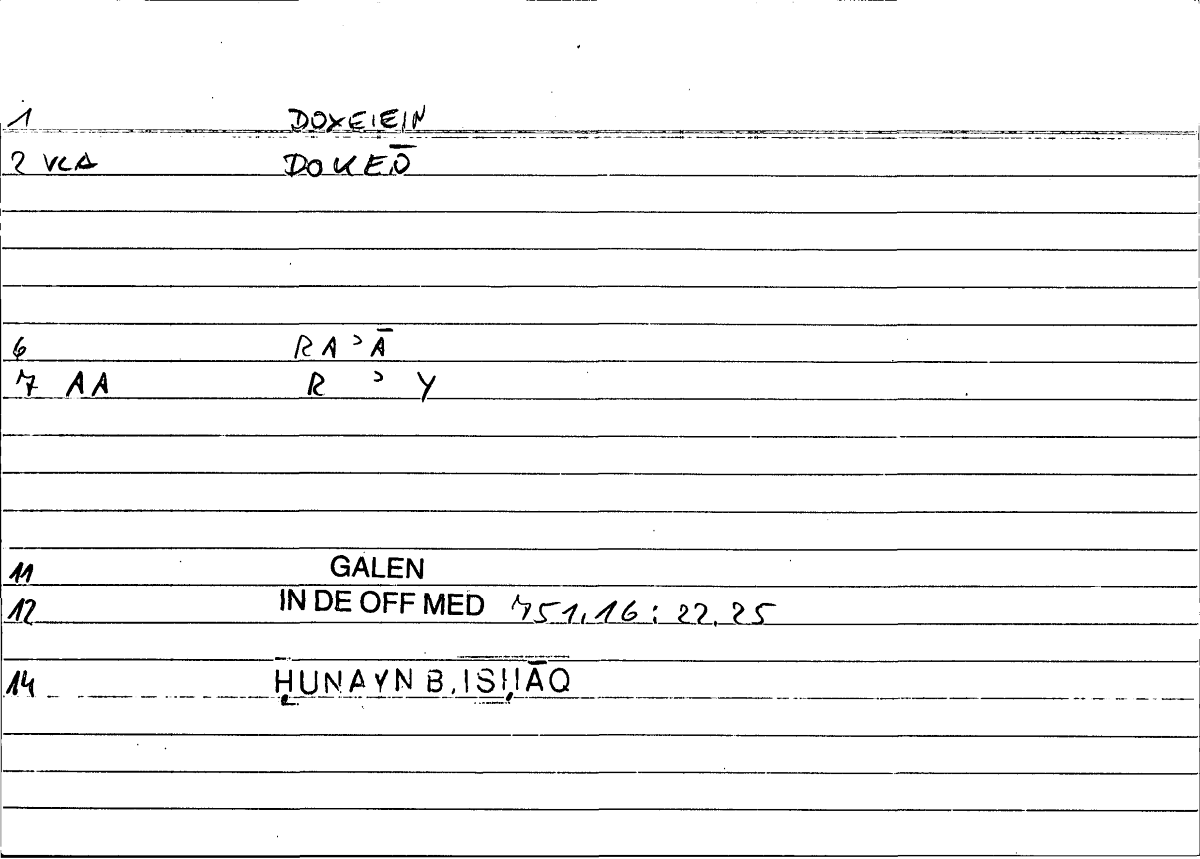 1 DOXEIEIN
2 VCA DOKEŌ
6 RAʾĀ
7 AA R ʾ Y
11 GALEN
12 IN DE OFF MED 751,16 : 22,25
14 ḤUNAYN B. ISḤĀQ